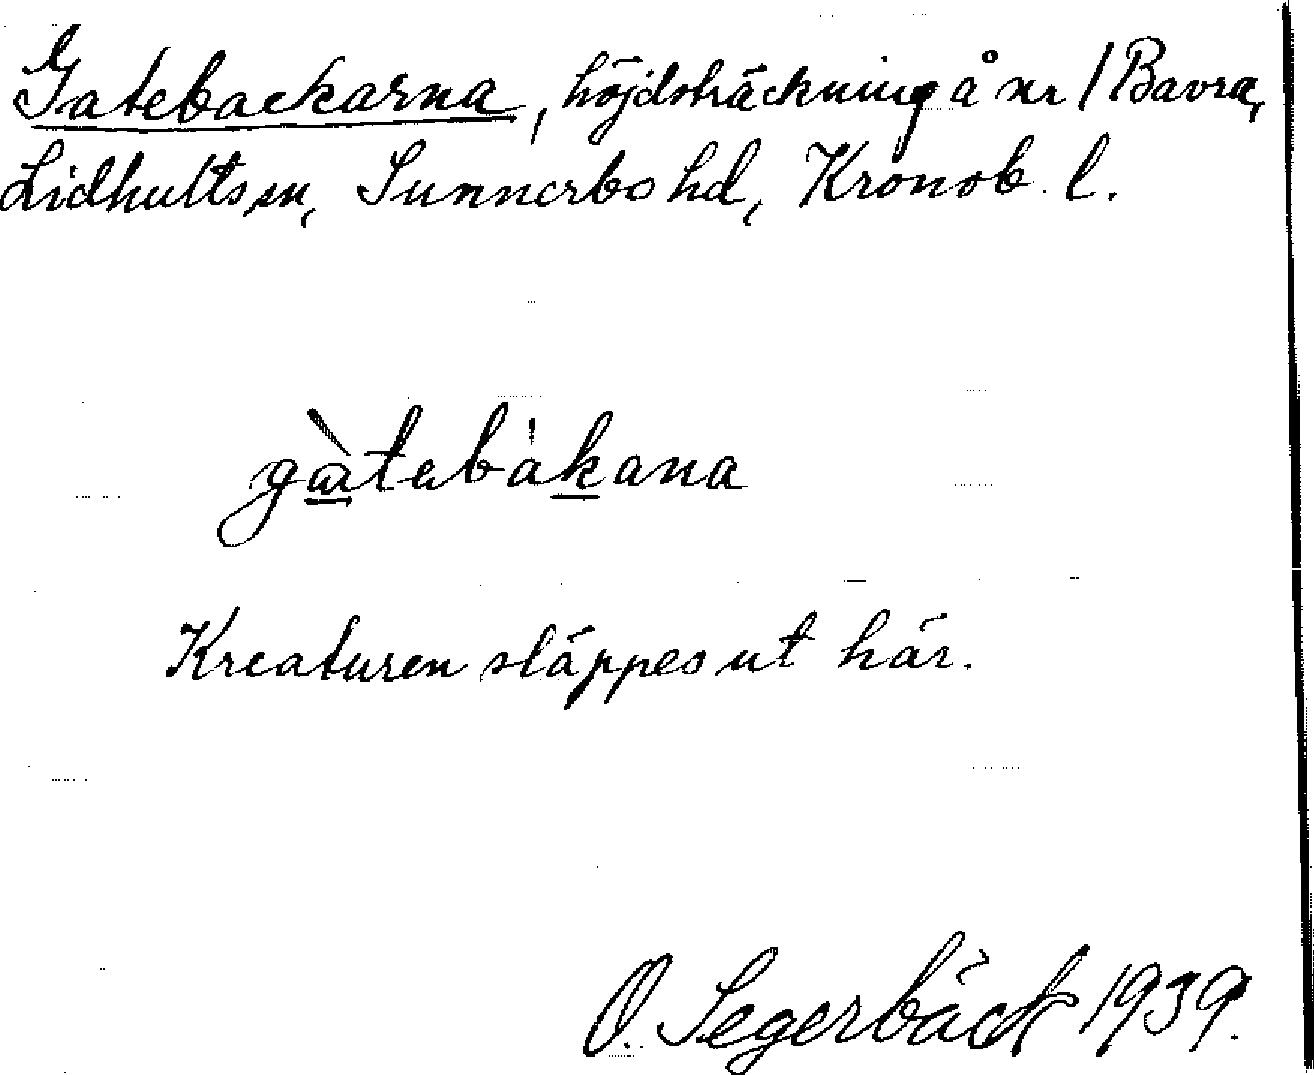 Gatebackarna, höjdsträckning å nr 1 Bavra,
Lidhults sn, Sunnerbo hd, Kronob. l.
gàtebákana
Kreaturen släppes ut här.
O. Segerbäck 1939.